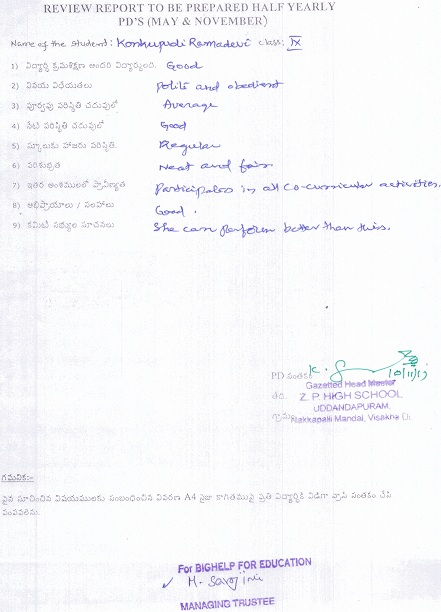 REVIEW REPORT TO BE PREPARED HALF YEARLY
PD'S (MAY & NOVEMBER)
Name of the student: Konkupudi Ramadevi class: IX
1) విద్యార్థి క్రమశిక్షణ అందరి విద్యార్థులది. Good
2) వినయ విధేయతలు Polite and obedient
3) పూర్వపు పరిస్థితి చదువులో Average
4) నేటి పరిస్థితి చదువులో Good
5) స్కూలుకు హాజరు పరిస్థితి. Regular
6) పరిశుభ్రత Neat and fair
7) ఇతర అంశములలో ప్రావీణ్యత Participates in all co-curricular activities.
8) అభిప్రాయాలు / సలహాలు Good.
9) కమిటీ సభ్యుల సూచనలు She can perform better than this.
PD సంతకం
Gazetted Head Master
తేది. Z. P. HIGH SCHOOL
UDDANDAPURAM,
గ్రామం Nakkapalli Mandal, Visakha
గమనిక:-
పైన సూచించిన విషయములకు సంబంధించిన వివరణ A4 సైజు కాగితముపై ప్రతి విద్యార్థికి విడిగా వ్రాసి సంతకం చేసి
పంపవలెను.
For BIGHELP FOR EDUCATION
M. Sarojini
MANAGING TRUSTEE